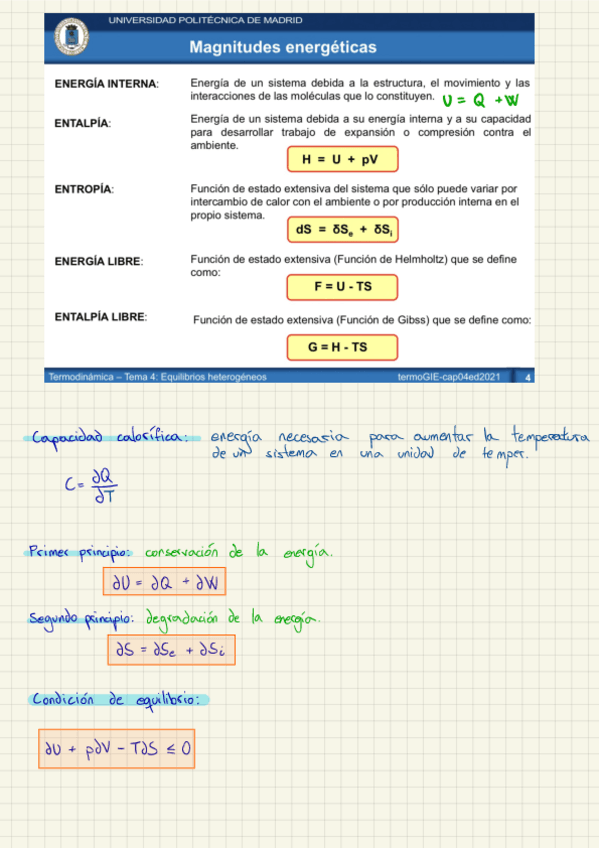 UNIVERSIDAD POLITÉCNICA DE MADRID
Magnitudes energéticas
ENERGÍA INTERNA:
Energía de un sistema debida a la estructura, el movimiento y las
interacciones de las moléculas que lo constituyen.
U = Q + W
ENTALPÍA:
Energía de un sistema debida a su energía interna y a su capacidad
para desarrollar trabajo de expansión o compresión contra el
ambiente.
H = U + pV
ENTROPÍA:
Función de estado extensiva del sistema que sólo puede variar por
intercambio de calor con el ambiente o por producción interna en el
propio sistema.
dS = δSe + δSi
ENERGÍA LIBRE:
Función de estado extensiva (Función de Helmholtz) que se define
como:
F = U - TS
ENTALPÍA LIBRE:
Función de estado extensiva (Función de Gibss) que se define como:
G = H - TS
Termodinámica – Tema 4: Equilibrios heterogéneos termoGIE-cap04ed2021 4
Capacidad calorífica: energía necesaria para aumentar la temperatura
de un sistema en una unidad de temper.
C = ∂Q/∂T
Primer principio: conservación de la energía.
∂U = ∂Q + ∂W
Segundo principio: degradación de la energía.
∂S = ∂Se + ∂Si
Condición de equilibrio:
∂U + p∂V - T∂S ≤ 0